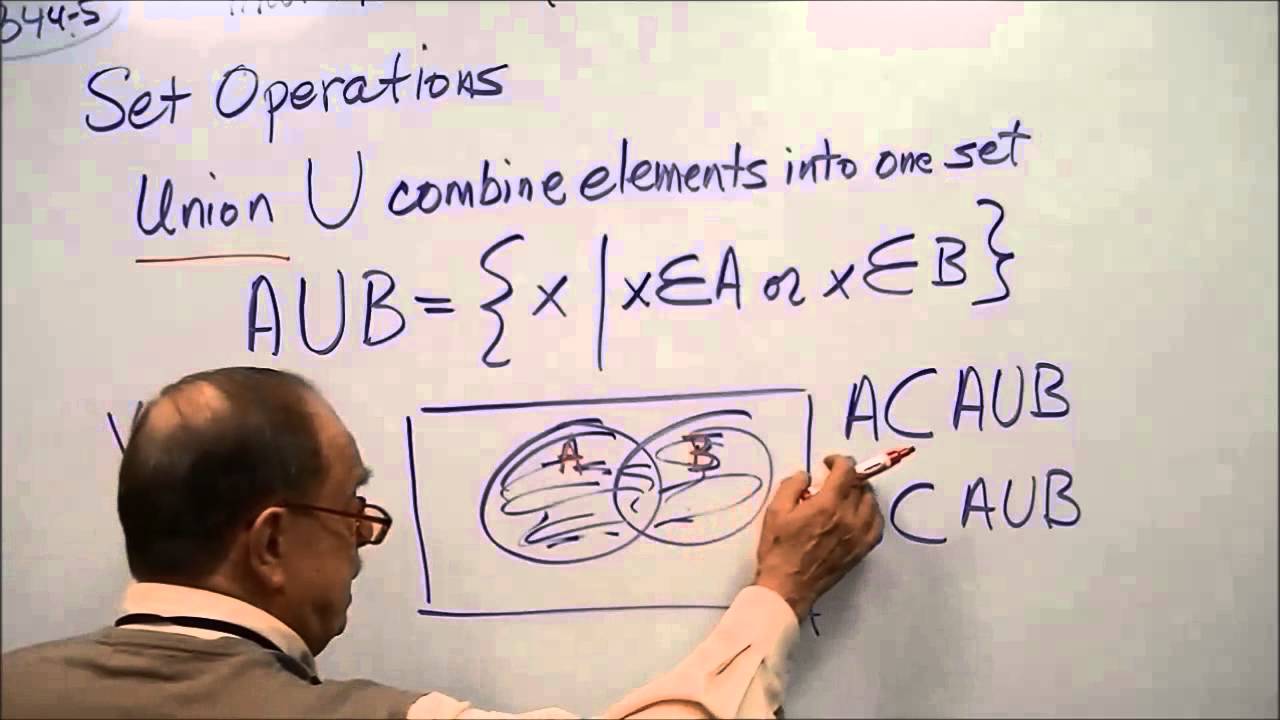 B44-5
Set Operations
Union U combine elements into one set
AUB = { x | x∈A or x∈B }
A B
A ⊂ AUB
⊂ AUB